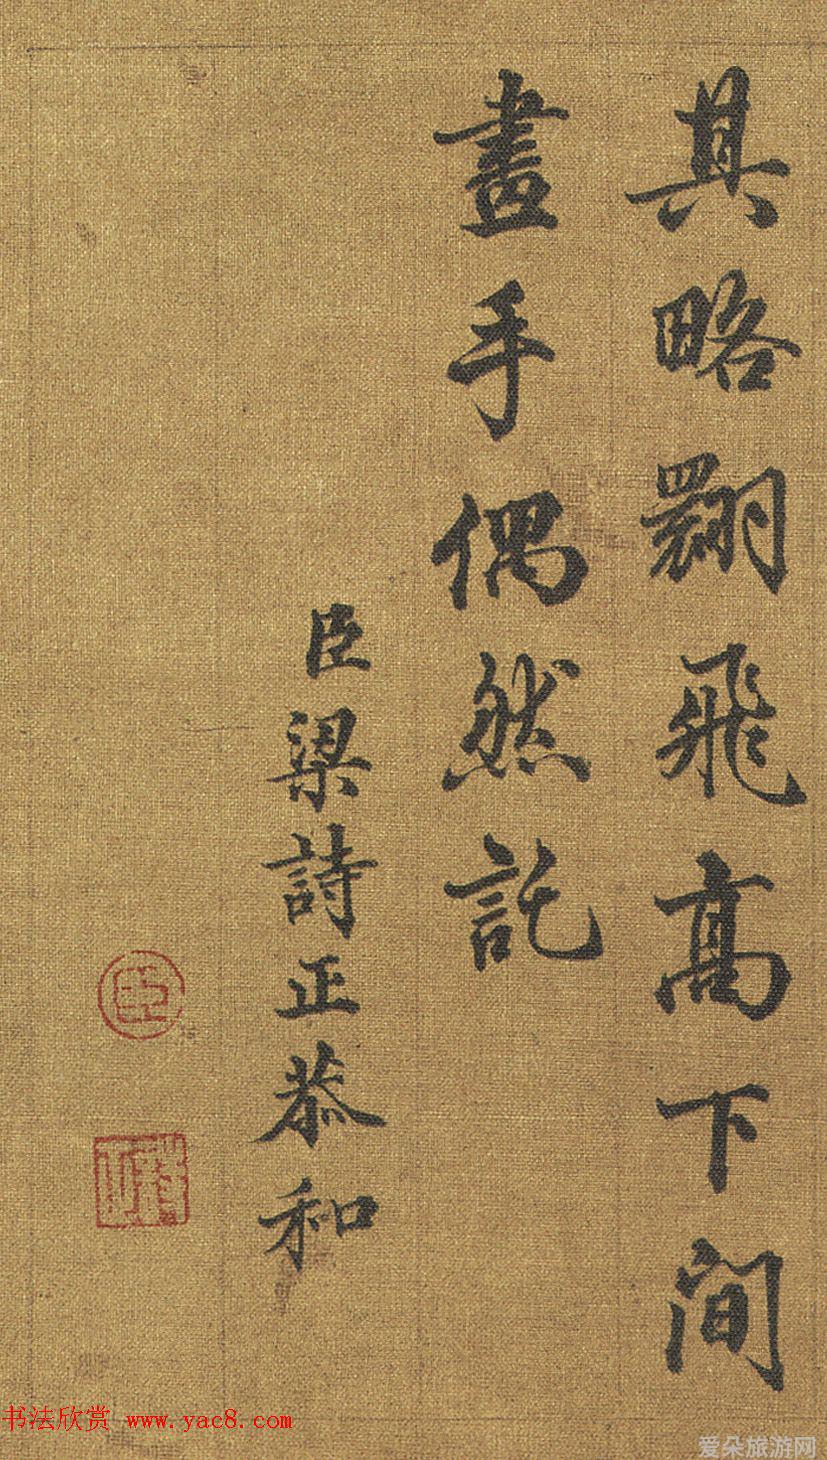 其略翾飛高下間
畫手偶然託
臣梁詩正恭和
臣
詩正
书法欣赏 www.yac8.com
爱朵旅游网